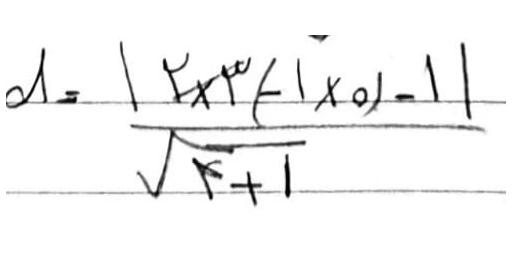 d = | ۲×۳(-۱×۵)-۱ |
√۴+۱